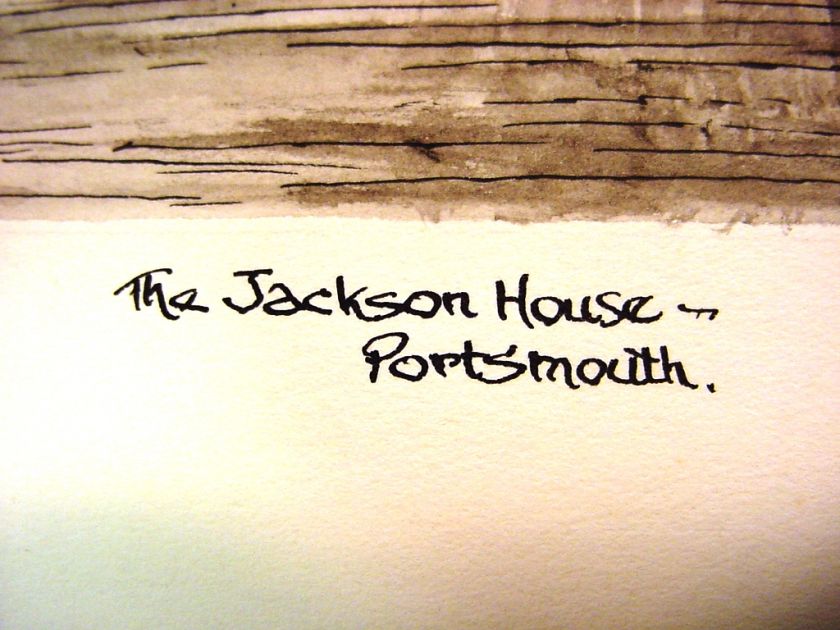 The Jackson House ~
Portsmouth.